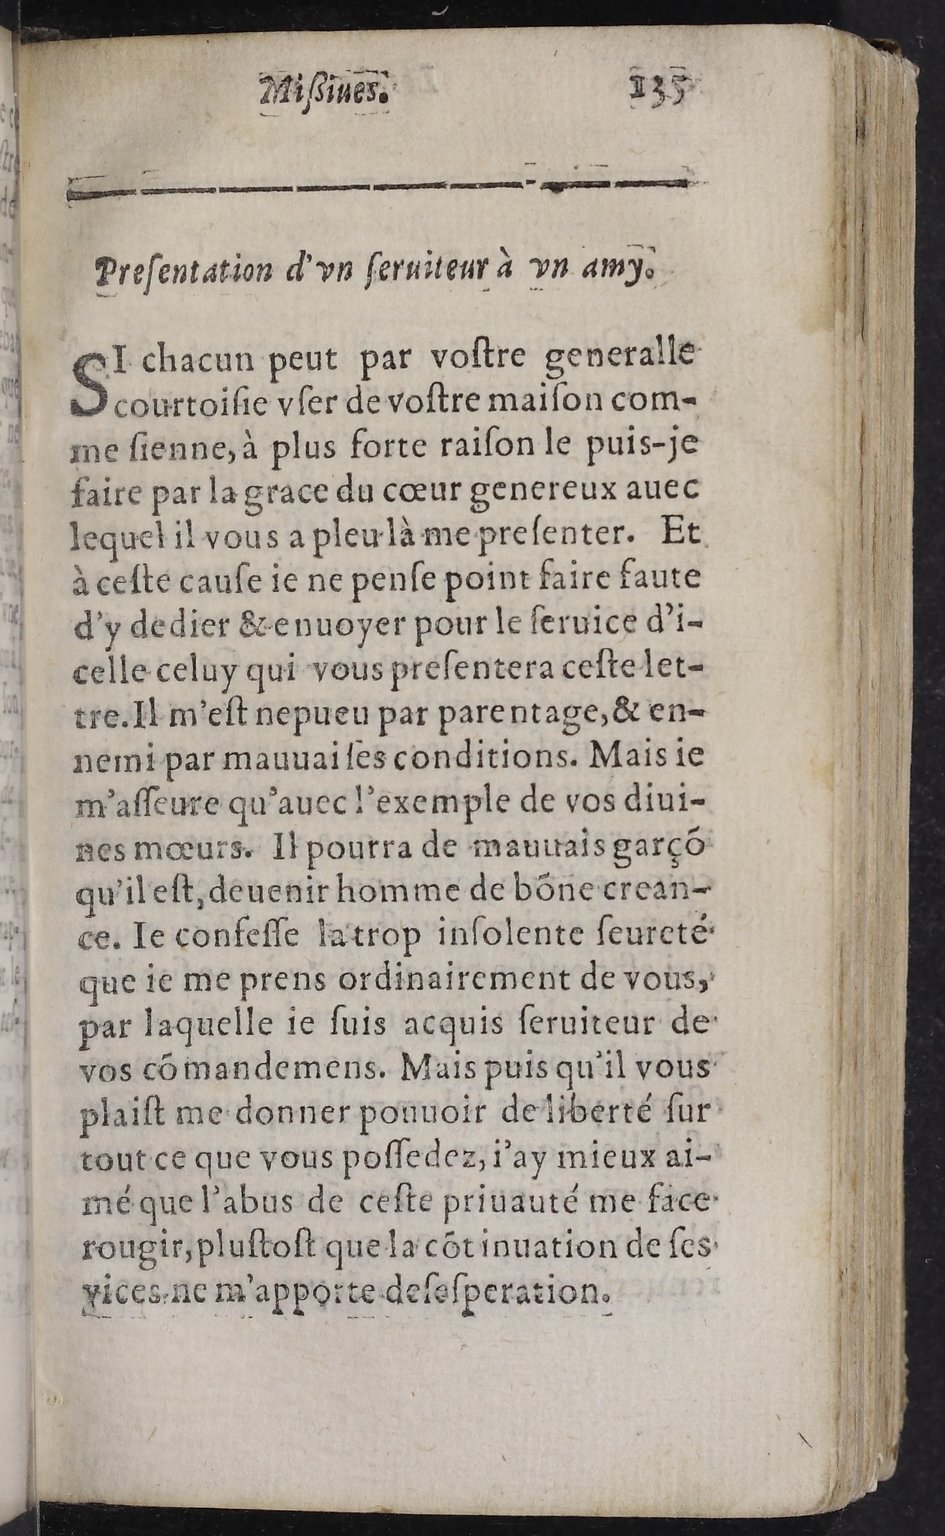 Miſſiues. 135
Preſentation d'vn ſeruiteur à vn amy.
SI chacun peut par voſtre generalle
courtoiſie vſer de voſtre maiſon com-
me ſienne, à plus forte raiſon le puis-je
faire par la grace du cœur genereux auec
lequel il vous a pleu là me preſenter. Et
à ceſte cauſe ie ne penſe point faire faute
d'y dedier & enuoyer pour le ſeruice d'i-
celle celuy qui vous preſentera ceſte let-
tre. Il m'eſt nepueu par parentage, & en-
nemi par mauuaiſes conditions. Mais ie
m'aſſeure qu'auec l'exemple de vos diui-
nes mœurs. Il pourra de mauuais garçõ
qu'il eſt, deuenir homme de bõne crean-
ce. Ie confeſſe la trop inſolente ſeureté
que ie me prens ordinairement de vous,
par laquelle ie ſuis acquis ſeruiteur de
vos cõmandemens. Mais puis qu'il vous
plaiſt me donner pouuoir de liberté ſur
tout ce que vous poſſedez, i'ay mieux ai-
mé que l'abus de ceſte priuauté me face
rougir, pluſtoſt que la cõtinuation de ſes
vices ne m'apporte deſeſperation.